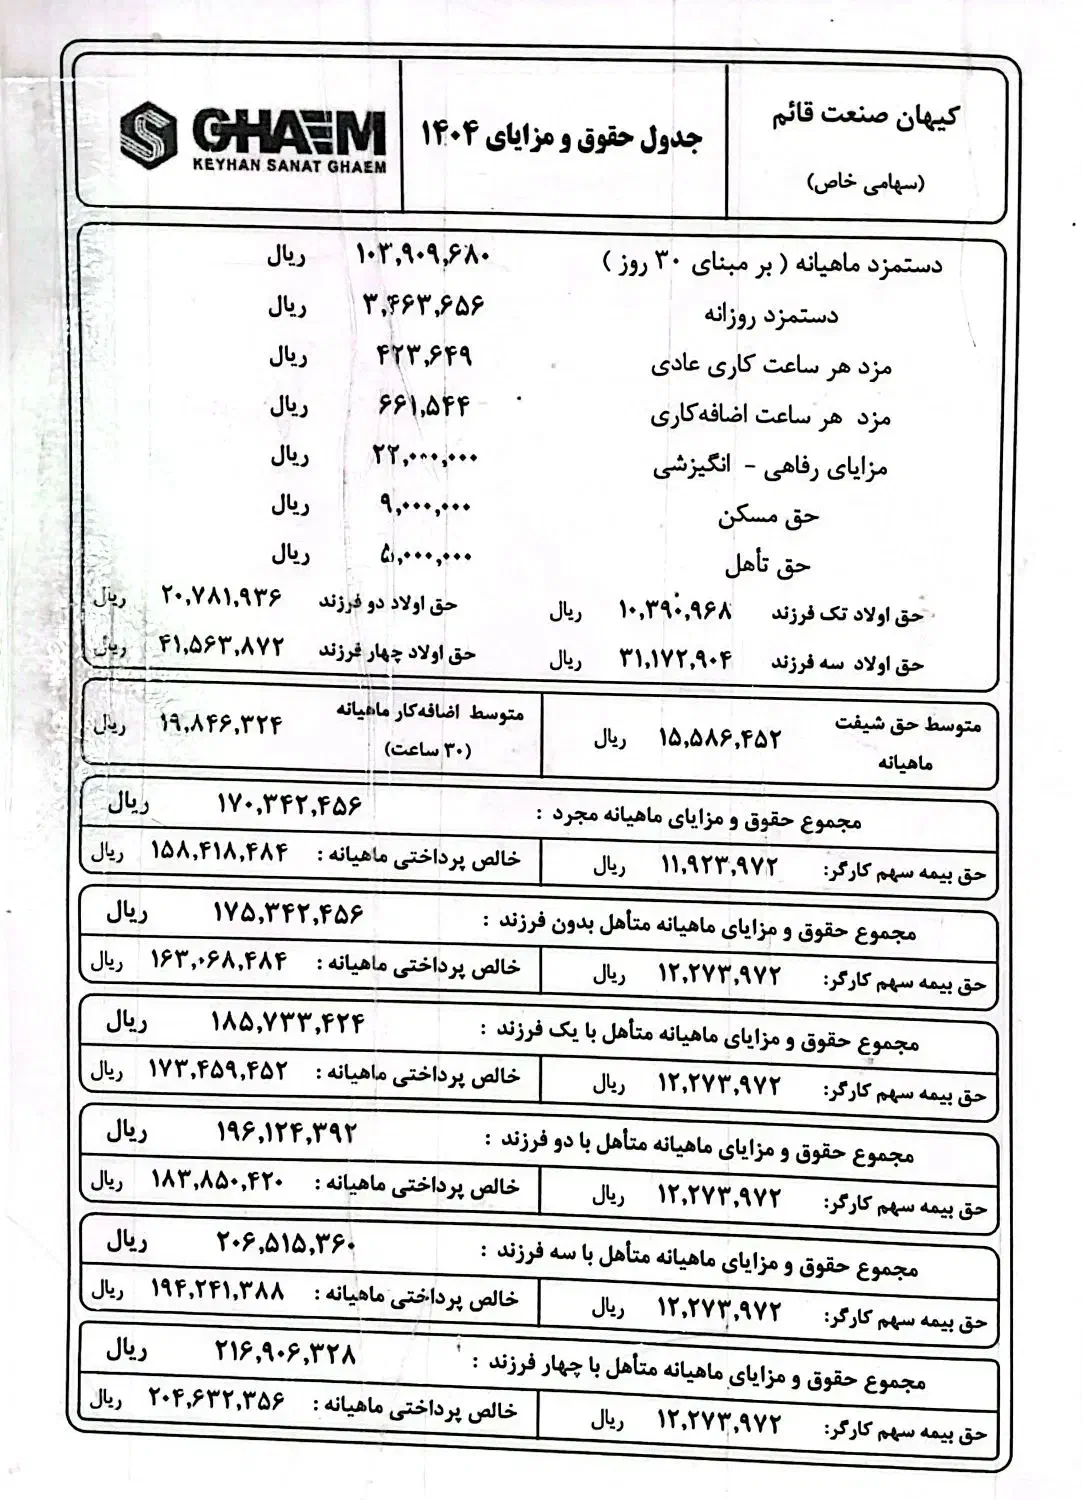 کیهان صنعت قائم
(سهامی خاص)
جدول حقوق و مزایای ۱۴۰۴
GHAEM
KEYHAN SANAT GHAEM
دستمزد ماهیانه ( بر مبنای ۳۰ روز ) ۱۰۳,۹۰۹,۶۸۰ ریال
دستمزد روزانه ۳,۴۶۳,۶۵۶ ریال
مزد هر ساعت کاری عادی ۴۲۳,۶۴۹ ریال
مزد هر ساعت اضافه‌کاری ۶۶۱,۵۴۴ ریال
مزایای رفاهی - انگیزشی ۲۲,۰۰۰,۰۰۰ ریال
حق مسکن ۹,۰۰۰,۰۰۰ ریال
حق تأهل ۵,۰۰۰,۰۰۰ ریال
حق اولاد تک فرزند ۱۰,۳۹۰,۹۶۸ ریال حق اولاد دو فرزند ۲۰,۷۸۱,۹۳۶ ریال
حق اولاد سه فرزند ۳۱,۱۷۲,۹۰۴ ریال حق اولاد چهار فرزند ۴۱,۵۶۳,۸۷۲ ریال
متوسط حق شیفت
ماهیانه
۱۵,۵۸۶,۴۵۲ ریال
متوسط اضافه‌کار ماهیانه
(۳۰ ساعت)
۱۹,۸۴۶,۳۲۴ ریال
مجموع حقوق و مزایای ماهیانه مجرد : ۱۷۰,۳۴۲,۴۵۶ ریال
حق بیمه سهم کارگر: ۱۱,۹۲۳,۹۷۲ ریال خالص پرداختی ماهیانه : ۱۵۸,۴۱۸,۴۸۴ ریال
مجموع حقوق و مزایای ماهیانه متأهل بدون فرزند : ۱۷۵,۳۴۲,۴۵۶ ریال
حق بیمه سهم کارگر: ۱۲,۲۷۳,۹۷۲ ریال خالص پرداختی ماهیانه : ۱۶۳,۰۶۸,۴۸۴ ریال
مجموع حقوق و مزایای ماهیانه متأهل با یک فرزند : ۱۸۵,۷۳۳,۴۲۴ ریال
حق بیمه سهم کارگر: ۱۲,۲۷۳,۹۷۲ ریال خالص پرداختی ماهیانه : ۱۷۳,۴۵۹,۴۵۲ ریال
مجموع حقوق و مزایای ماهیانه متأهل با دو فرزند : ۱۹۶,۱۲۴,۳۹۲ ریال
حق بیمه سهم کارگر: ۱۲,۲۷۳,۹۷۲ ریال خالص پرداختی ماهیانه : ۱۸۳,۸۵۰,۴۲۰ ریال
مجموع حقوق و مزایای ماهیانه متأهل با سه فرزند : ۲۰۶,۵۱۵,۳۶۰ ریال
حق بیمه سهم کارگر: ۱۲,۲۷۳,۹۷۲ ریال خالص پرداختی ماهیانه : ۱۹۴,۲۴۱,۳۸۸ ریال
مجموع حقوق و مزایای ماهیانه متأهل با چهار فرزند : ۲۱۶,۹۰۶,۳۲۸ ریال
حق بیمه سهم کارگر: ۱۲,۲۷۳,۹۷۲ ریال خالص پرداختی ماهیانه : ۲۰۴,۶۳۲,۳۵۶ ریال